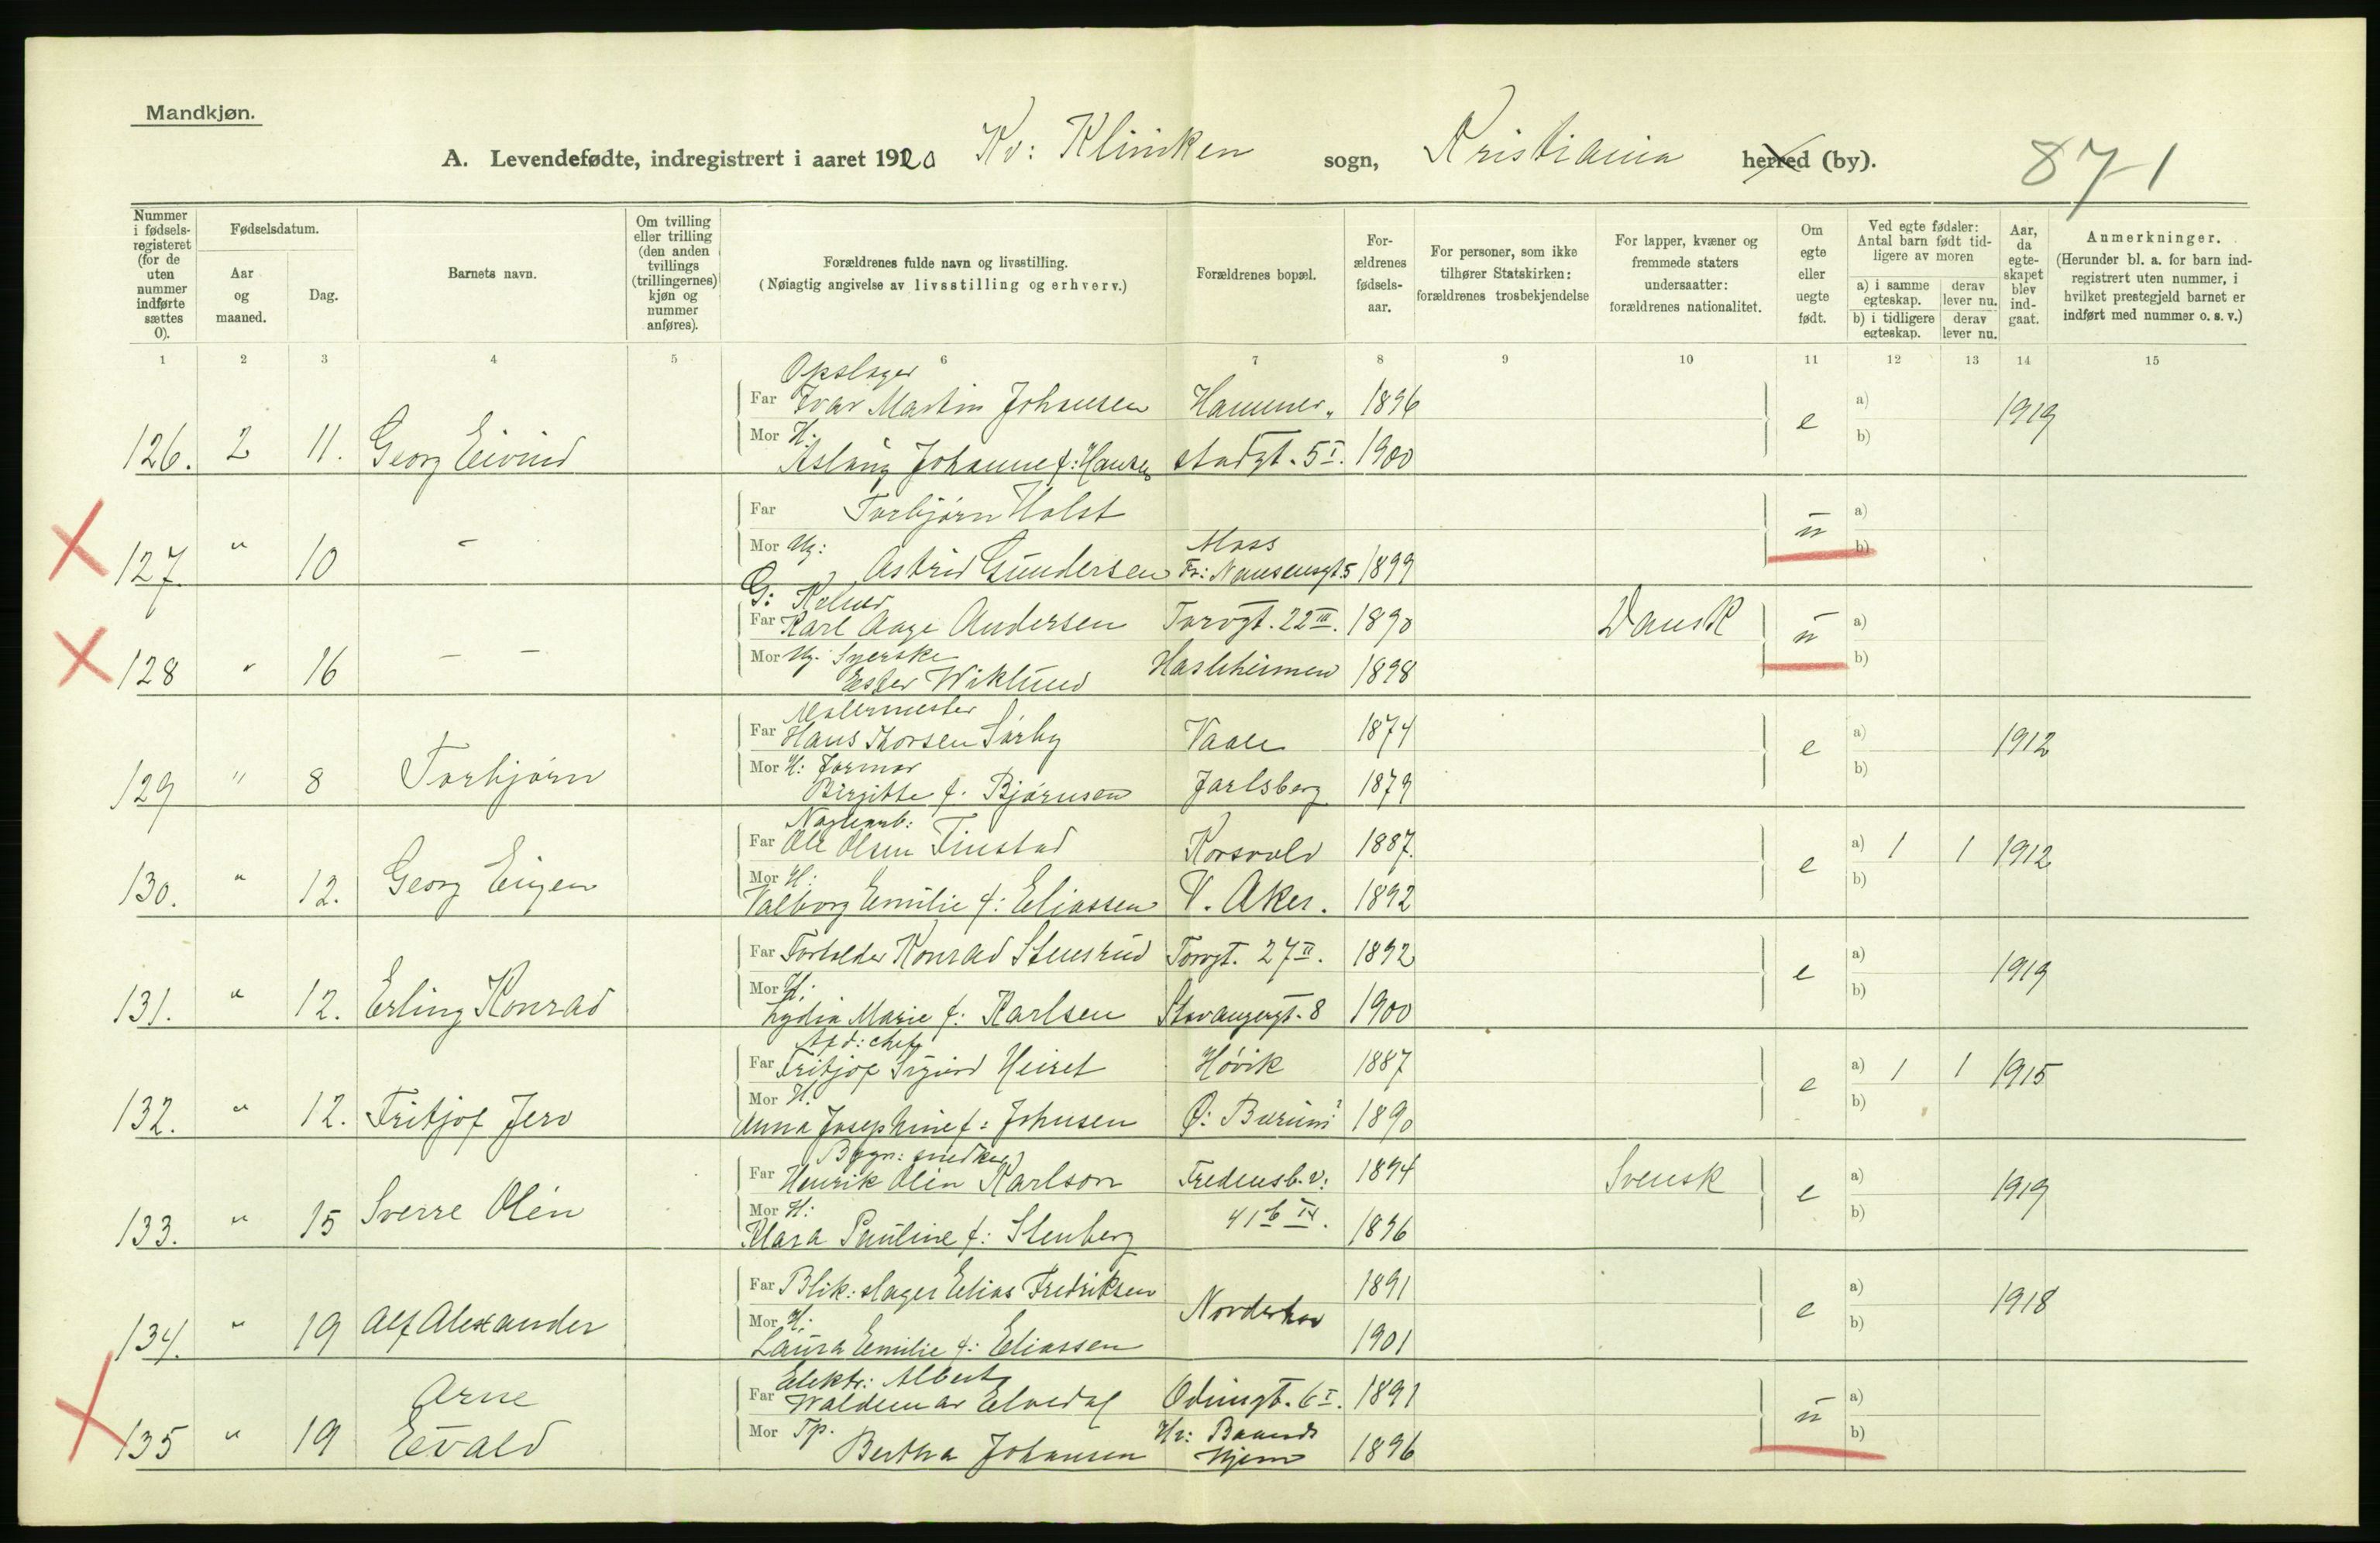 Mandkjøn.
A. Levendefødte, indregistrert i aaret 1920 Kv: Kliniken sogn, Kristiania herred (by). 871
Nummer i fødsels-registeret (for de uten nummer indførte sættes 0).
Fødselsdatum.
Aar og maaned.
Dag.
Barnets navn.
Om tvilling eller trilling (den anden tvillings (trillingernes) kjøn og nummer anføres).
Forældrenes fulde navn og livsstilling.
(Nøiagtig angivelse av livsstilling og erhverv.)
Forældrenes bopæl.
For-ældrenes fødsels-aar.
For personer, som ikke tilhører Statskirken: forældrenes trosbekjendelse
For lapper, kvæner og fremmede staters undersaatter: forældrenes nationalitet.
Om egte eller uegte født.
Ved egte fødsler: Antal barn født tid-ligere av moren
a) i samme egteskap.
derav lever nu.
b) i tidligere egteskap.
derav lever nu.
Aar, da egte-skapet blev ind-gaat.
Anmerkninger.
(Herunder bl. a. for barn ind-registrert uten nummer, i hvilket prestegjeld barnet er indført med nummer o. s. v.)
1 2 3 4 5 6 7 8 9 10 11 12 13 14 15
Opslager
Far Ivar Martin Johansen Hammer„ 1896 a) 1919
126. 2 11. Georg Eivind Mor H: e b)
Aslaug Johanne f: Hansen stadgt. 5 I. 1900
Far Torbjørn Holst a)
127. " 10 - Mor Ug: Moss u b)
Astrid Gundersen Fr: Nansensgt 5 1899
G: Kelner
Far Karl Aage Andersen Torvgt. 22 III. 1890 Dansk a)
128 " 16 - - Mor Ug. Syerske Hasleheimen u b)
Ester Wiklund 1898
Malermester
Far Hans Thorsen Sørby Vaale 1874 a) 1912
129 " 8 Torbjørn Mor H: Jormor e b)
Birgitte f. Bjørnsen Jarlsberg 1879
Far Ole Olsen Finstad Korsvold 1887. a) 1 1 1912
130. " 12. Georg Eugen Mor H: e b)
Valborg Emilie f: Eliassen V. Aker. 1892
Far Forholder Konrad Stensrud Torvgt. 27 II. 1892 a) 1919
131. " 12. Erling Konrad Mor H: e b)
Lydia Marie f: Karlsen Stavangergt. 8 1900
Afd: chef
Far Fritjof Sigurd Heiret Høvik 1887 a) 1 1 1915
132. " 12. Fritjof Jero Mor H. e b)
Anna Josephine f: Johnsen Ø: Bærum 1890
Bygn: snedker
Far Henrik Olin Karlson Fredensb. v: 1894 Svensk a) 1919
133. " 15 Sverre Olin Mor H: 41 b IV. e b)
Klara Pauline f: Stenberg 1896
Far Blik: slager Elias Fredriksen 1891 a) 1918
134. " 19 Alf Alexander Mor H: Norderhov e b)
Laura Emilie f: Eliassen 1901
Elektr: Albert
Arne Far Waldemar Elvedal Odinsgt. 6 I. 1891 a)
135 " 19 Evald Mor Tp. u b)
Bertha Johansen Hjem 1896